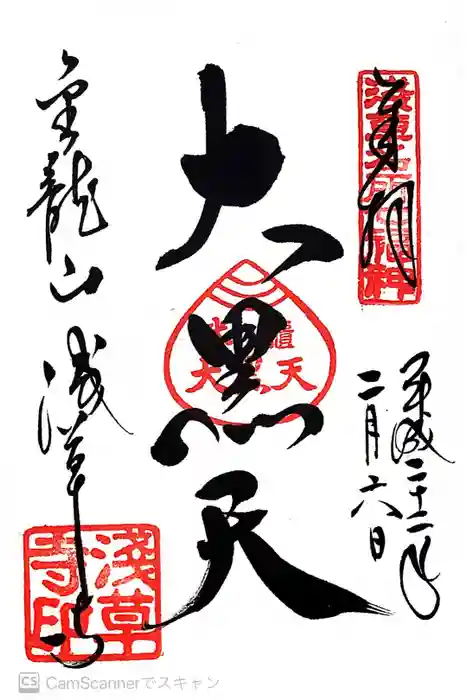 奉拝
浅草名所七福神
平成二十二年
二月六日
大黒天
金龍山
浅草寺
淺草
寺印
CS CamScannerでスキャン